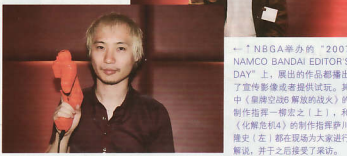 ←↑NBGA举办的“2007
NAMCO BANDAI EDITOR'S
DAY”上，展出的作品都播出
了宣传影像或者提供试玩。其
中《皇牌空战6 解放的战火》的
制作指挥一柳宏之（上），和
《化解危机4》的制作指挥萨川
隆史（左）都在现场为大家进行
解说，并于之后接受了采访。